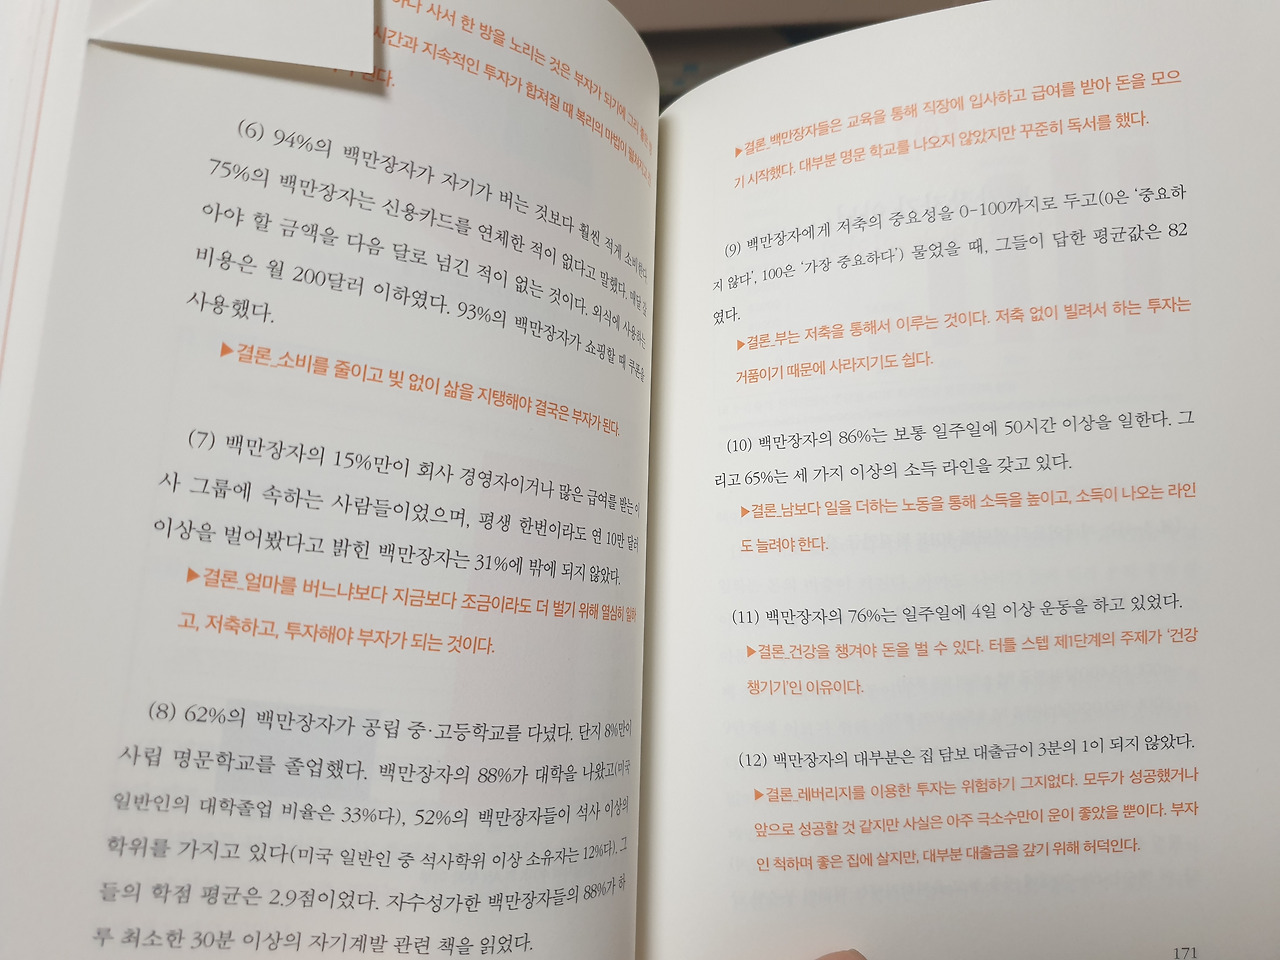 하나 사서 한 방을 노리는 것은 부자가 되기에 그리 좋은
시간과 지속적인 투자가 합쳐질 때 복리의 마법이 펼쳐지고
된다.
(6) 94%의 백만장자가 자기가 버는 것보다 훨씬 적게 소비한다.
75%의 백만장자는 신용카드를 연체한 적이 없다고 말했다. 매달 갚
아야 할 금액을 다음 달로 넘긴 적이 없는 것이다. 외식에 사용하는
비용은 월 200달러 이하였다. 93%의 백만장자가 쇼핑할 때 쿠폰을
사용했다.
▶결론_소비를 줄이고 빚 없이 삶을 지탱해야 결국은 부자가 된다.
(7) 백만장자의 15%만이 회사 경영자이거나 많은 급여를 받는 이
사 그룹에 속하는 사람들이었으며, 평생 한번이라도 연 10만 달러
이상을 벌어봤다고 밝힌 백만장자는 31%에 밖에 되지 않았다.
▶결론_얼마를 버느냐보다 지금보다 조금이라도 더 벌기 위해 열심히 일하
고, 저축하고, 투자해야 부자가 되는 것이다.
(8) 62%의 백만장자가 공립 중·고등학교를 다녔다. 단지 8%만이
사립 명문학교를 졸업했다. 백만장자의 88%가 대학을 나왔고(미국
일반인의 대학졸업 비율은 33%다), 52%의 백만장자들이 석사 이상의
학위를 가지고 있다(미국 일반인 중 석사학위 이상 소유자는 12%다). 그
들의 학점 평균은 2.9점이었다. 자수성가한 백만장자들의 88%가 하
루 최소한 30분 이상의 자기계발 관련 책을 읽었다.
▶결론_백만장자들은 교육을 통해 직장에 입사하고 급여를 받아 돈을 모으
기 시작했다. 대부분 명문 학교를 나오지 않았지만 꾸준히 독서를 했다.
(9) 백만장자에게 저축의 중요성을 0-100까지로 두고(0은 ‘중요하
지 않다’, 100은 ‘가장 중요하다’) 물었을 때, 그들이 답한 평균값은 82
였다.
▶결론_부는 저축을 통해서 이루는 것이다. 저축 없이 빌려서 하는 투자는
거품이기 때문에 사라지기도 쉽다.
(10) 백만장자의 86%는 보통 일주일에 50시간 이상을 일한다. 그
리고 65%는 세 가지 이상의 소득 라인을 갖고 있다.
▶결론_남보다 일을 더하는 노동을 통해 소득을 높이고, 소득이 나오는 라인
도 늘려야 한다.
(11) 백만장자의 76%는 일주일에 4일 이상 운동을 하고 있었다.
▶결론_건강을 챙겨야 돈을 벌 수 있다. 터틀 스텝 제1단계의 주제가 ‘건강
챙기기’인 이유이다.
(12) 백만장자의 대부분은 집 담보 대출금이 3분의 1이 되지 않았다.
▶결론_레버리지를 이용한 투자는 위험하기 그지없다. 모두가 성공했거나
앞으로 성공할 것 같지만 사실은 아주 극소수만이 운이 좋았을 뿐이다. 부자
인 척하며 좋은 집에 살지만, 대부분 대출금을 갚기 위해 허덕인다.
171